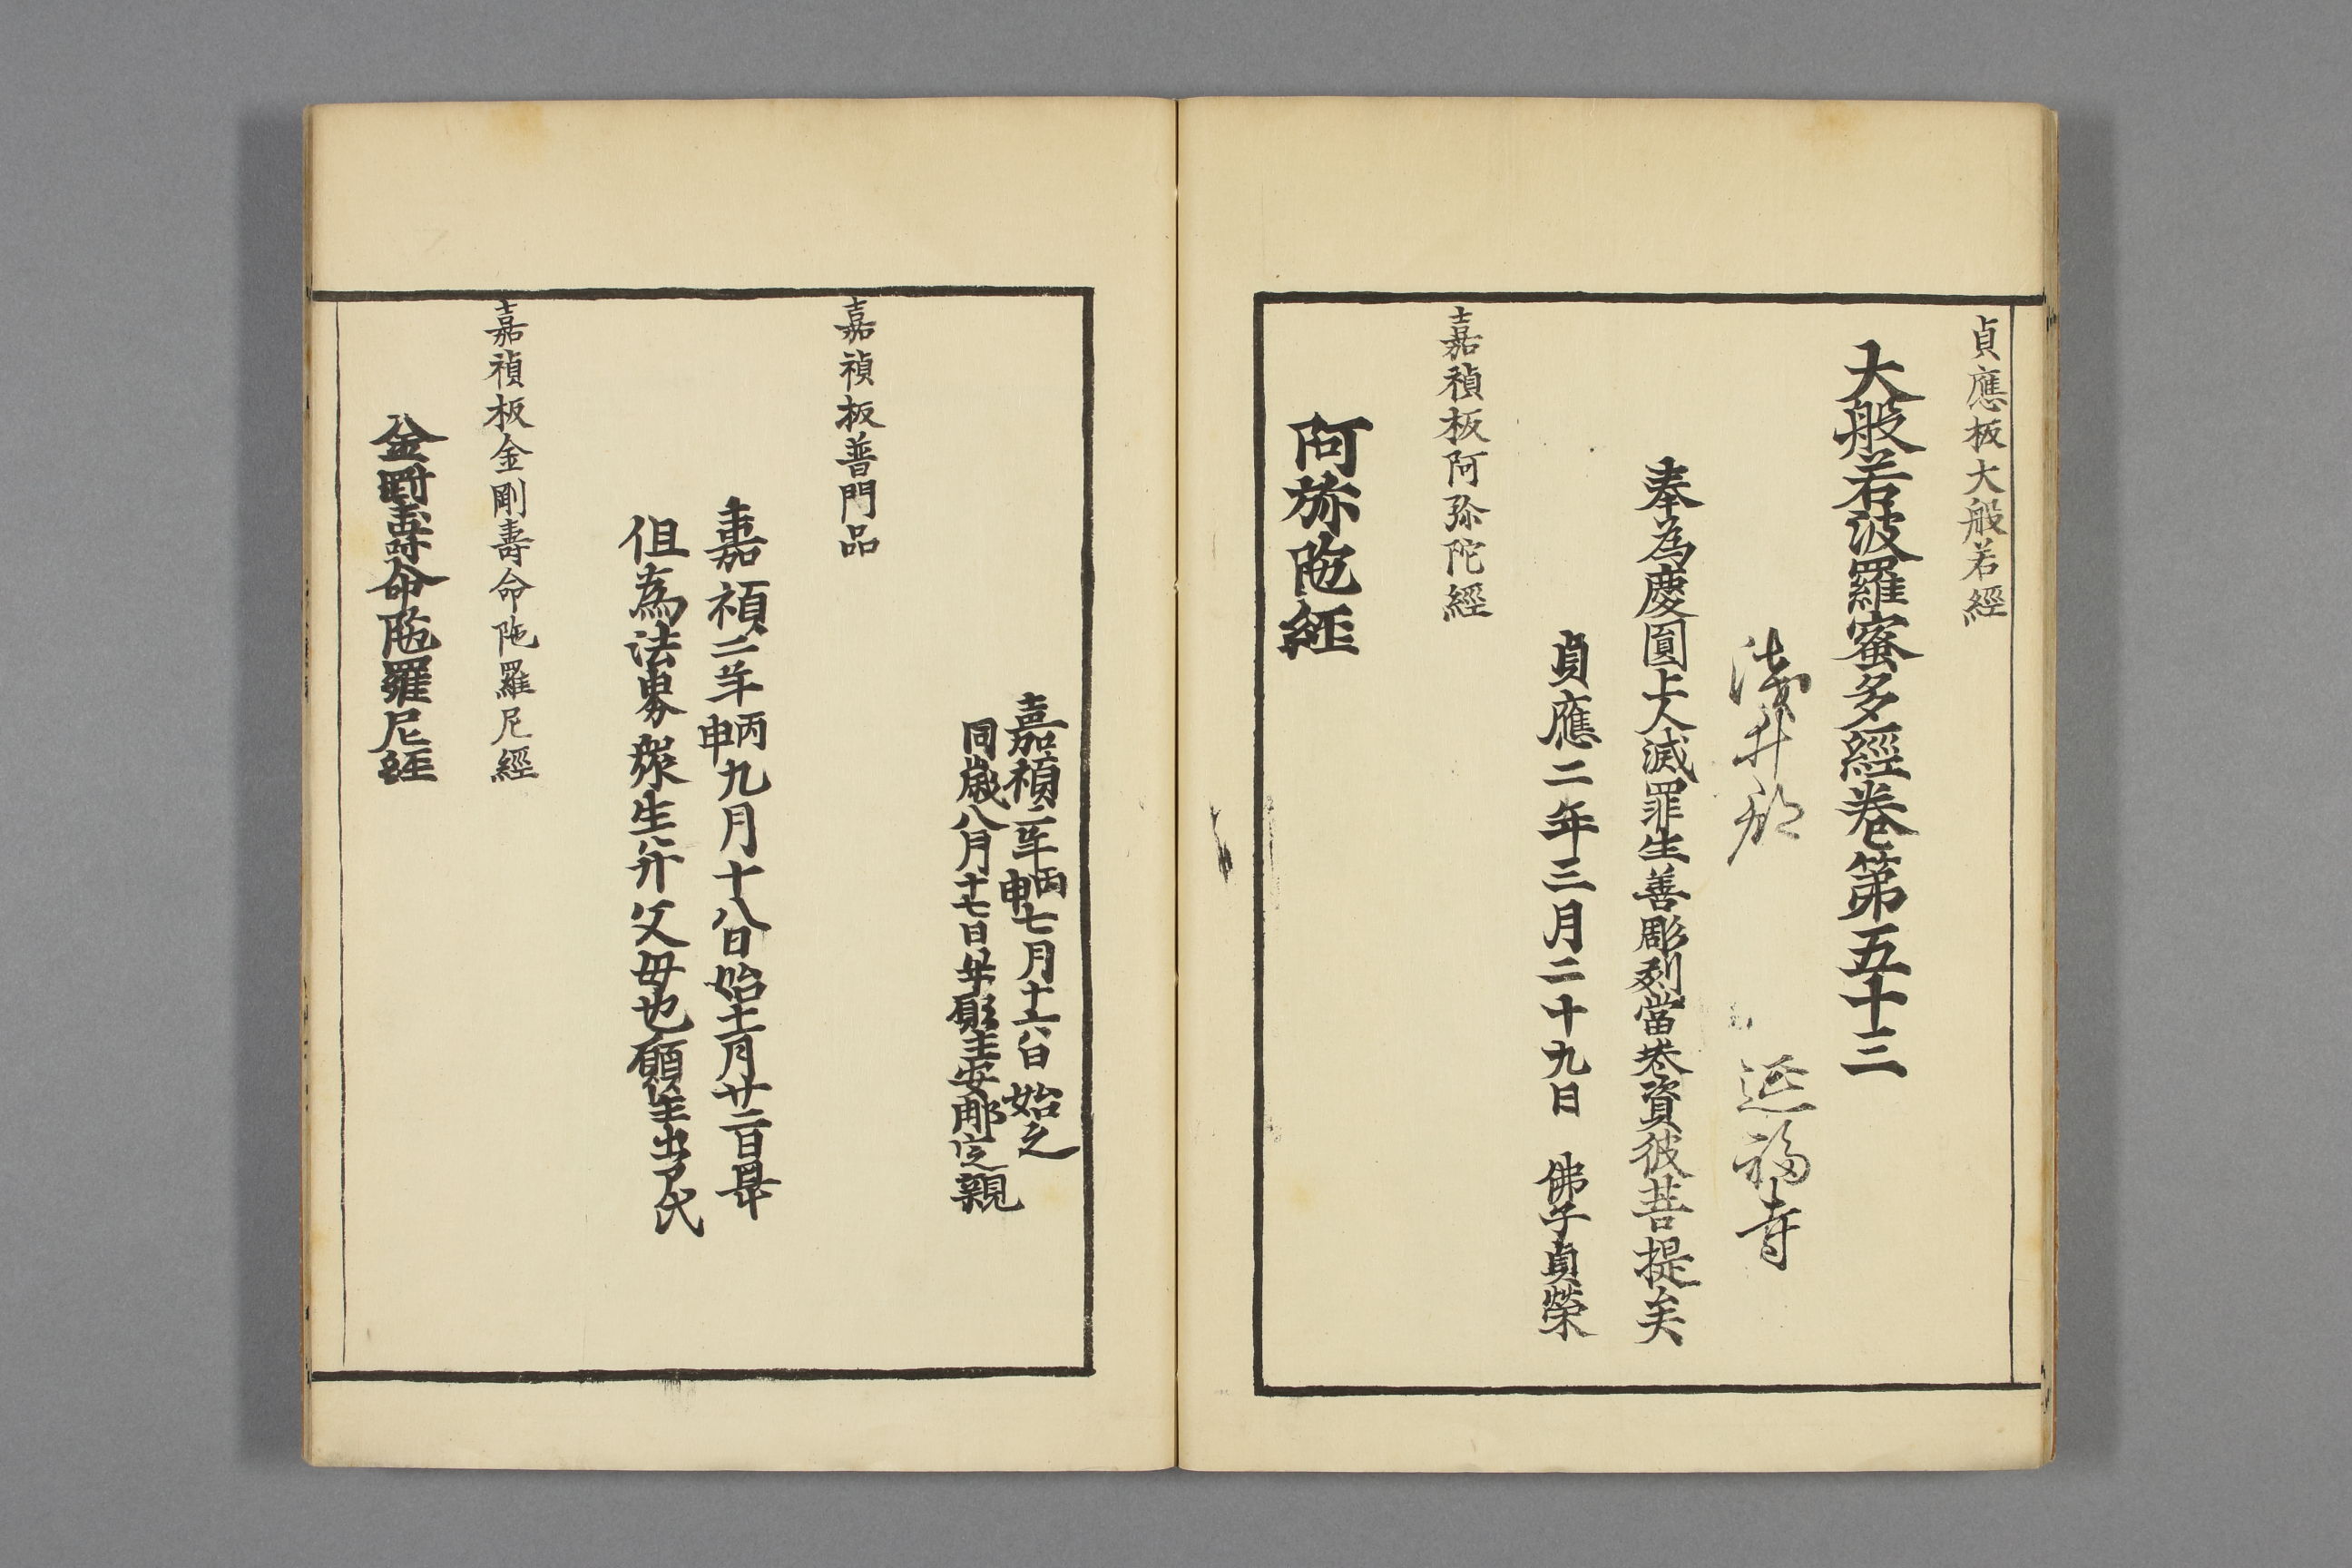 貞應板大般若經
大般若波羅蜜多經卷第五十三
淺井郡 延福寺
奉為慶圓上人滅罪生善彫刻當卷資彼菩提矣
貞應二年三月二十九日 佛子貞榮
嘉禎板阿弥陀經
阿弥陁經
嘉禎二年丙申七月十六日始之
同歳八月十七日畢願主安那定親
嘉禎板普門品
嘉禎二年丙申九月十八日始十一月廿二日畢
但為法界衆生并父母也願主出了氏
嘉禎板金剛壽命陁羅尼經
金剛壽命陁羅尼経